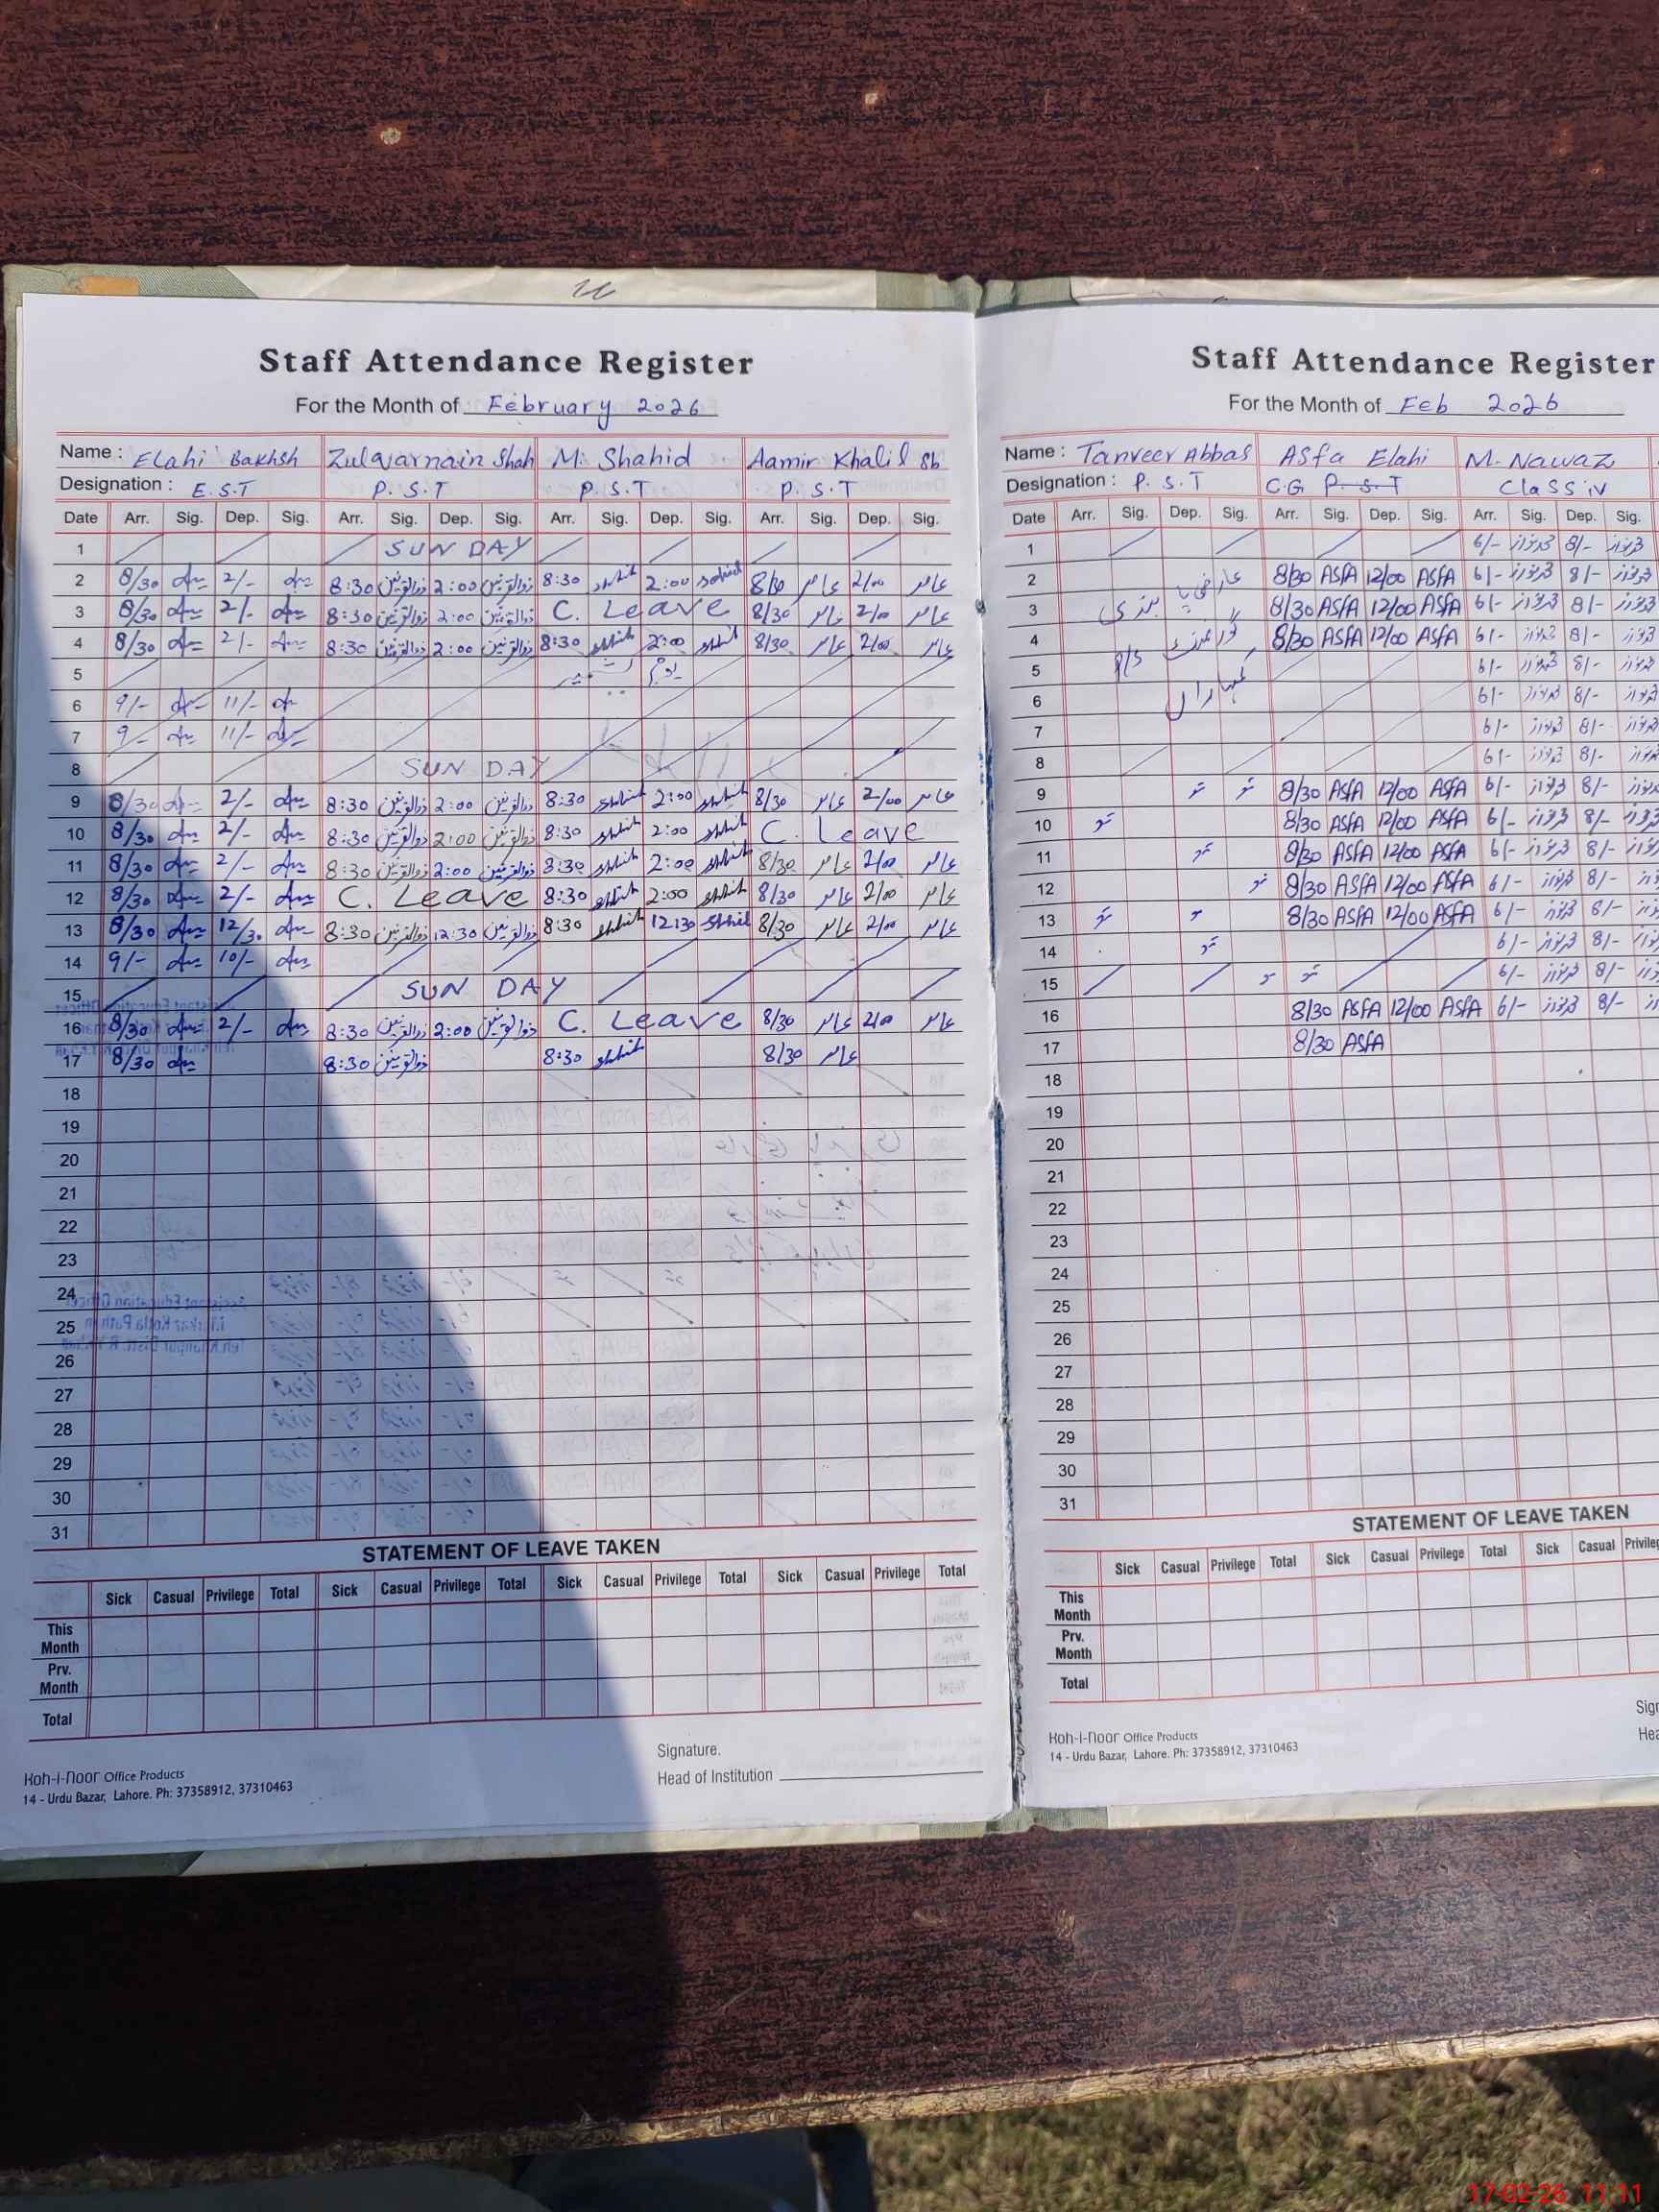 Staff Attendance Register
For the Month of February 2026
Name : Elahi Bakhsh Zulqarnain Shah M. Shahid Aamir Khalil Sb
Designation : E.S.T P.S.T P.S.T P.S.T
Date Arr. Sig. Dep. Sig. Arr. Sig. Dep. Sig. Arr. Sig. Dep. Sig. Arr. Sig. Dep. Sig.
1 SUNDAY
2 8/30 2/- 8:30 ذوالقرنین 2:00 ذوالقرنین 8:30 2:00 8/30 عامر 2/00 عامر
3 8/30 2/- 8:30 ذوالقرنین 2:00 ذوالقرنین C. Leave 8/30 عامر 2/00 عامر
4 8/30 2/- 8:30 ذوالقرنین 2:00 ذوالقرنین 8:30 2:00 8/30 عامر 2/00 عامر
5
6 9/- 11/-
7 9- 11/-
8 SUNDAY
9 8/30 2/- 8:30 ذوالقرنین 2:00 ذوالقرنین 8:30 2:00 8/30 عامر 2/00 عامر
10 8/30 2/- 8:30 ذوالقرنین 2:00 ذوالقرنین 8:30 2:00 C. Leave
11 8/30 2/- 8:30 ذوالقرنین 2:00 ذوالقرنین 8:30 2:00 8/30 عامر 2/00 عامر
12 8/30 2/- C. Leave 8:30 2:00 8/30 عامر 2/00 عامر
13 8/30 12/30 8:30 ذوالقرنین 12:30 ذوالقرنین 8:30 12:30 8/30 عامر 2/00 عامر
14 9/- 10/-
15 SUNDAY
16 8/30 2/- 8:30 ذوالقرنین 2:00 ذوالقرنین C. Leave 8/30 عامر 2/00 عامر
17 8/30 8:30 ذوالقرنین 8:30 8/30 عامر
18
19
20
21
22
23
24
25
26
27
28
29
30
31
STATEMENT OF LEAVE TAKEN
Sick Casual Privilege Total Sick Casual Privilege Total Sick Casual Privilege Total Sick Casual Privilege Total
This Month
Prv. Month
Total
Signature.
Head of Institution
Koh-i-Noor Office Products
14 - Urdu Bazar, Lahore. Ph: 37358912, 37310463
Staff Attendance Register
For the Month of Feb 2026
Name : Tanveer Abbas Asfa Elahi M. Nawaz
Designation : P.S.T C.G P.S.T Class IV
Date Arr. Sig. Dep. Sig. Arr. Sig. Dep. Sig. Arr. Sig. Dep. Sig.
1 6/- 8/-
2 عارضی 8/30 ASFA 12/00 ASFA 6/- 8/-
3 8/30 ASFA 12/00 ASFA 6/- 8/-
4 8/30 ASFA 12/00 ASFA 6/- 8/-
5 6/- 8/-
6 6/- 8/-
7 6/- 8/-
8 6/- 8/-
9 8/30 ASFA 12/00 ASFA 6/- 8/-
10 8/30 ASFA 12/00 ASFA 6/- 8/-
11 8/30 ASFA 12/00 ASFA 6/- 8/-
12 8/30 ASFA 12/00 ASFA 6/- 8/-
13 8/30 ASFA 12/00 ASFA 6/- 8/-
14 6/- 8/-
15 6/- 8/-
16 8/30 ASFA 12/00 ASFA 6/- 8/-
17 8/30 ASFA
18
19
20
21
22
23
24
25
26
27
28
29
30
31
STATEMENT OF LEAVE TAKEN
Sick Casual Privilege Total Sick Casual Privilege Total Sick Casual
This Month
Prv. Month
Total
Koh-i-Noor Office Products
14 - Urdu Bazar, Lahore. Ph: 37358912, 37310463
17-02-26 11:11